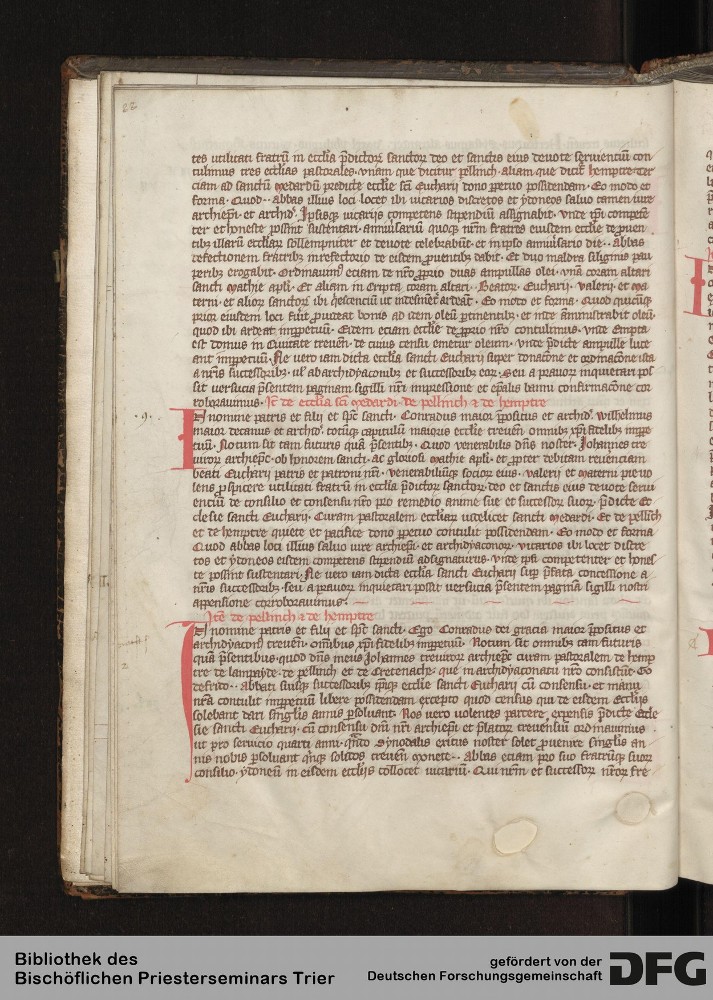 tes utilitati fratrū in ecclīa p̄dictorꝝ sanctorꝝ deo et sanctis eius deuote seruientiū con
tulimus tres ecclīas pastorales. vnam que dicitur pellinch. aliam que dicit᷑ hemptre. ter
ciam ad sanctū medardū predicte ecclīe sc̄i Eucharij dono ꝑpetuo possidendam. Eo modo et
forma. Quod .. abbas illius loci locet ibi vicarios discretos et ydoneos saluo tamen iure
archiep̄i. et archid. Ipsisqꝫ vicarijs competens stipendiū assignabit. vnde ip̄i compete
ter et honeste possint sustentari. anniūsariū quoqꝫ nr̄m fratres eiusdem ecclīe de ꝓuen
tibꝫ illarū ecclīarꝝ sollempniter et deuote celebrabūt. et in ipso anniūsario die .. abbas
refectionem fratribꝫ in refectorio de eisdem ꝓuentibꝫ dabit. Et duo maldra siliginis pau
peribꝫ erogabit. Ordinauimꝰ eciam de nr̄o ꝓprio duas ampullas olei. vnā coram altari
sancti mathie apli. Et aliam in cripta coram altari. Beatorꝝ. Eucharij. Valerij. et ma
terni. et aliorꝝ sanctorꝝ ibi q̄escenciū ut indesinēt᷑ ardeāt. Eo modo et forma. Quod quicūqꝫ
prior eiusdem loci fūit ꝓuideat bonis ad idem oleū ꝑtinentibꝫ. et inde āministrabit oleū
quod ibi ardeat inꝑpetuū. Eidem eciam ecclīe de ꝓprio nr̄o contulimus. vnde empta
est domus in Ciuitate treuen̄. de cuius censu emetur oleum. vnde p̄dicte ampulle lute
ant inꝑpetuū. Ne vero iam dicta ecclīa sancti Eucharij super donacōne et ordinacōne ista
a nr̄is successoribꝫ. ul᷑ ab archidyaconibꝫ. et successoribꝫ eorꝝ. seu a prauorꝝ inquietari pos
sit versucia p̄sentem paginam sigilli nr̄i impressione et ep̄alis banni confirmacōne cor
roborauimus. Itē de ecclīa sc̄i medardi. de pellinch ⁊ de hemptre
.9. In nomine patris et filij et spc̄ sancti. Conradus maior p̄positus et archid. wilhelmus
maior decanus et archid. totūqꝫ capitulū maioris ecclīe treuen̄ omnibꝫ xp̄i fidelibꝫ inꝑpe
tuū. Notum sit tam futuris quā p̄sentibꝫ. Quod venerabilis dn̄s noster. Johannes tre
uirorꝝ archiepc̄. ob honorem sancti. ac gloriosi mathie apli. et ꝓpter debitam reuerēciam
beati Eucharij patris et patroni nr̄i. venerabiliūqꝫ sociorꝝ eius. valerij et materni pie vo
lens ꝓspicere utilitati fratrū in ecclīa p̄dictorꝝ sanctorꝝ. deo et sanctis eius deuote serui
enciū de consilio et consensu nr̄o pro remedio anime sue et successorꝝ suorꝝ. p̄dicte Ec
clesie sancti Eucharij. Curam pastoralem ecclīarꝝ videlicet sancti medardi. Et de pellich
et de hemptre quiete et pacifice dono ꝑpetuo contulit possidendam. Eo modo et forma
Quod abbas loci illius saluo iure archiep̄i. et archidyaconorꝝ. vicarios ibi locet discre
tos et ydoneos eisdem competens stipendiū adsignaturus. vnde ip̄i competenter et hones
te possint sustentari. Ne vero iam dicta ecclīa sancti Eucharij sup̄ p̄fata concessione a
nr̄is successoribꝫ. seu a prauorꝝ inquietari possit versucia p̄sentem paginā sigilli nostri
appensione corroborauimus.
Itē de pellinch ⁊ de hemptre
In nomine patris et filij et spc̄ sancti. Ego Conradus dei gracia maior p̄positus et
archidyaconꝰ treuen̄. Omnibus xp̄i fidelibꝫ inꝑpetuū. Notum sit omnibꝫ tam futuris
quā p̄sentibꝫ. quod dn̄s meus Johannes treuirorꝝ archiepc̄ curam pastoralem de hemp
tre de lampayde. de pellinch et de Cretenache. que in archidyaconatu nr̄o consistūt. Go
defrido .. abbati suisqꝫ successoribꝫ ip̄iqꝫ ecclīe sancti Eucharij cū consensu. et manu
nr̄a contulit inꝑpetuū libere possidendam excepto quod census qui de eisdem Ecclīis
solebant dari singlis annis ꝑsoluant᷑. Nos vero volentes parcere. expensis p̄dicte Eccle
sie sancti Eucharij. cū consensu dn̄i nr̄i archiep̄i et p̄latorꝝ treuensiū ordinauimus
ut pro seruicio quarti anni. qn̄do Synodalis exitus noster solet ꝓuenire singlis an
nis nobis ꝑsoluant q̄nqꝫ solidos treuen̄ monete .. abbas eciam pro suo fratrūqꝫ suorꝝ
consilio. ydoneū in eisdem ecclījs collocet vicariū. Qui nr̄m et successorꝝ nr̄orꝝ fre
Bibliothek des
Bischöflichen Priesterseminars Trier
gefördert von der
Deutschen Forschungsgemeinschaft
DFG